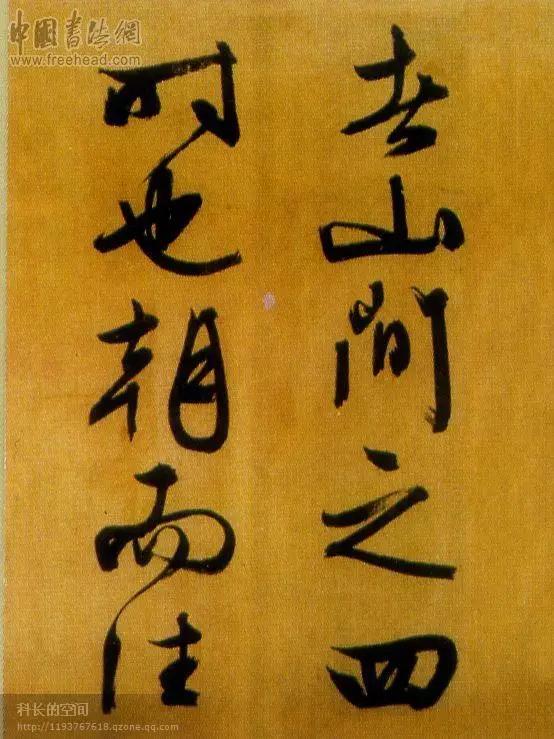 中國書法網
www.freehead.com
者山间之四
时也朝而往
科长的空间
http://1193767618.qzone.qq.com